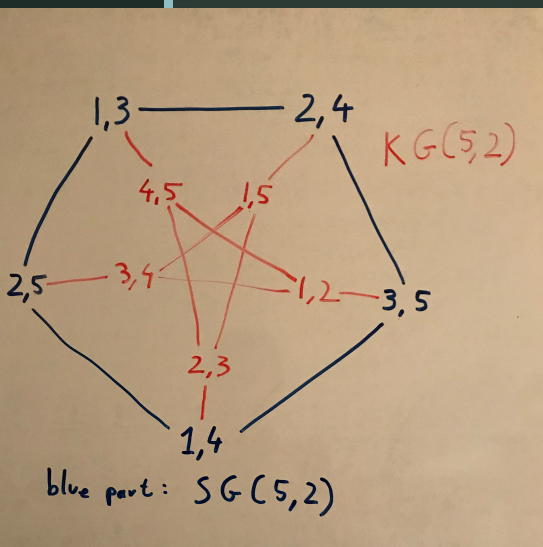 1,3
2,4
KG(5,2)
4,5
1,5
2,5
3,4
1,2
3,5
2,3
1,4
blue part: SG(5,2)